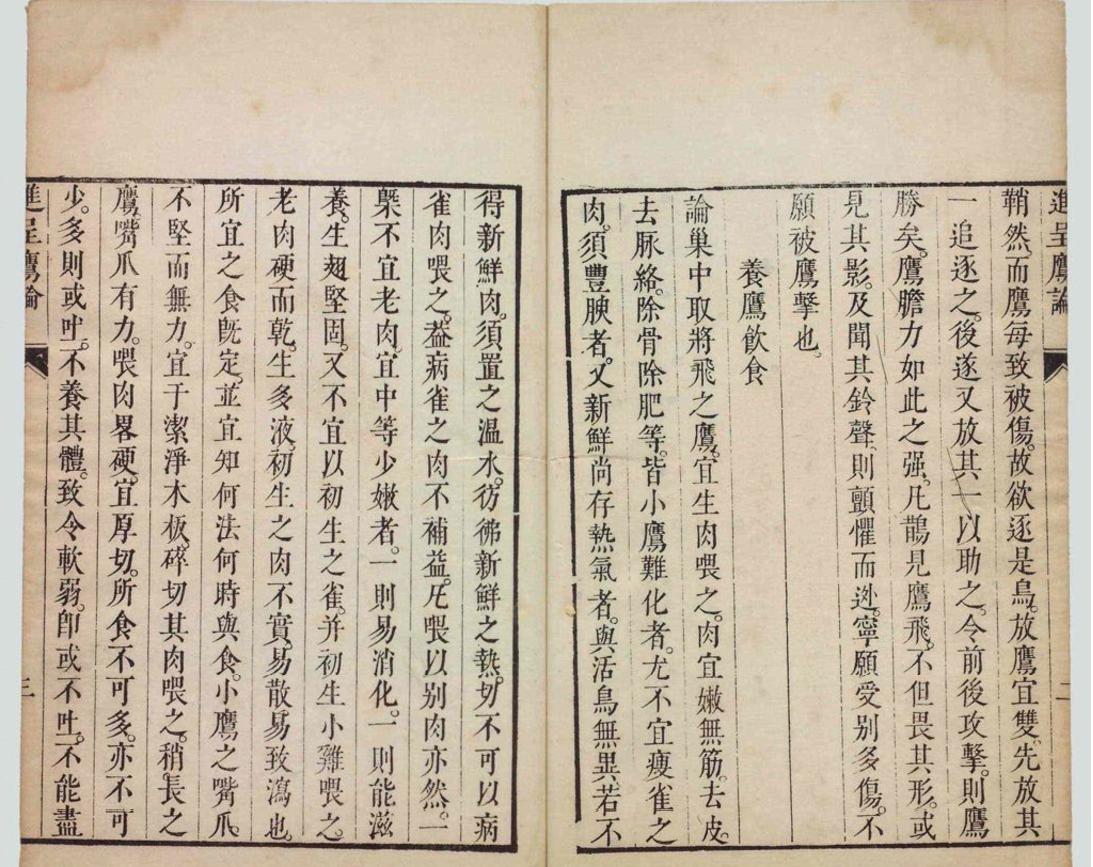 進呈鷹論
二
鞘然而鷹每致被傷。故欲逐是鳥。放鷹宜雙。先放其
一追逐之。後遂又放其一以助之。令前後攻擊。則鷹
勝矣。鷹膽力如此之强。凡鵲見鷹飛。不但畏其形。或
見其影。及聞其鈴聲。則顫懼而逊。寧願受別多傷。不
願被鷹擊也。
養鷹飲食
論巢中取將飛之鷹。宜生肉喂之。肉宜嫩無筋。去皮。
去脉絡。除骨除肥等。皆小鷹難化者。尤不宜瘦雀之
肉。須豐腴者。又新鮮尚存熱氣者。與活鳥無異。若不
得新鮮肉。須置之温水。彷彿新鮮之熱。切不可以病
雀肉喂之。葢病雀之肉不補益。凡喂以别肉亦然。一
槩不宜老肉。宜中等少嫩者。一則易消化。一則能滋
養。生翅堅固。又不宜以初生之雀。并初生小雞喂之。
老肉硬而乾。生多液。初生之肉不實。易散。易致瀉也。
所宜之食旣定。並宜知何法何時與食。小鷹之嘴爪。
不堅而無力。宜于潔淨木板。碎切其肉喂之。稍長之
鷹。嘴爪有力。喂肉畧硬。宜厚切。所食不可多。亦不可
少。多則或吐。不養其體。致令軟弱。卽或不吐。不能盡
進呈鷹論
三